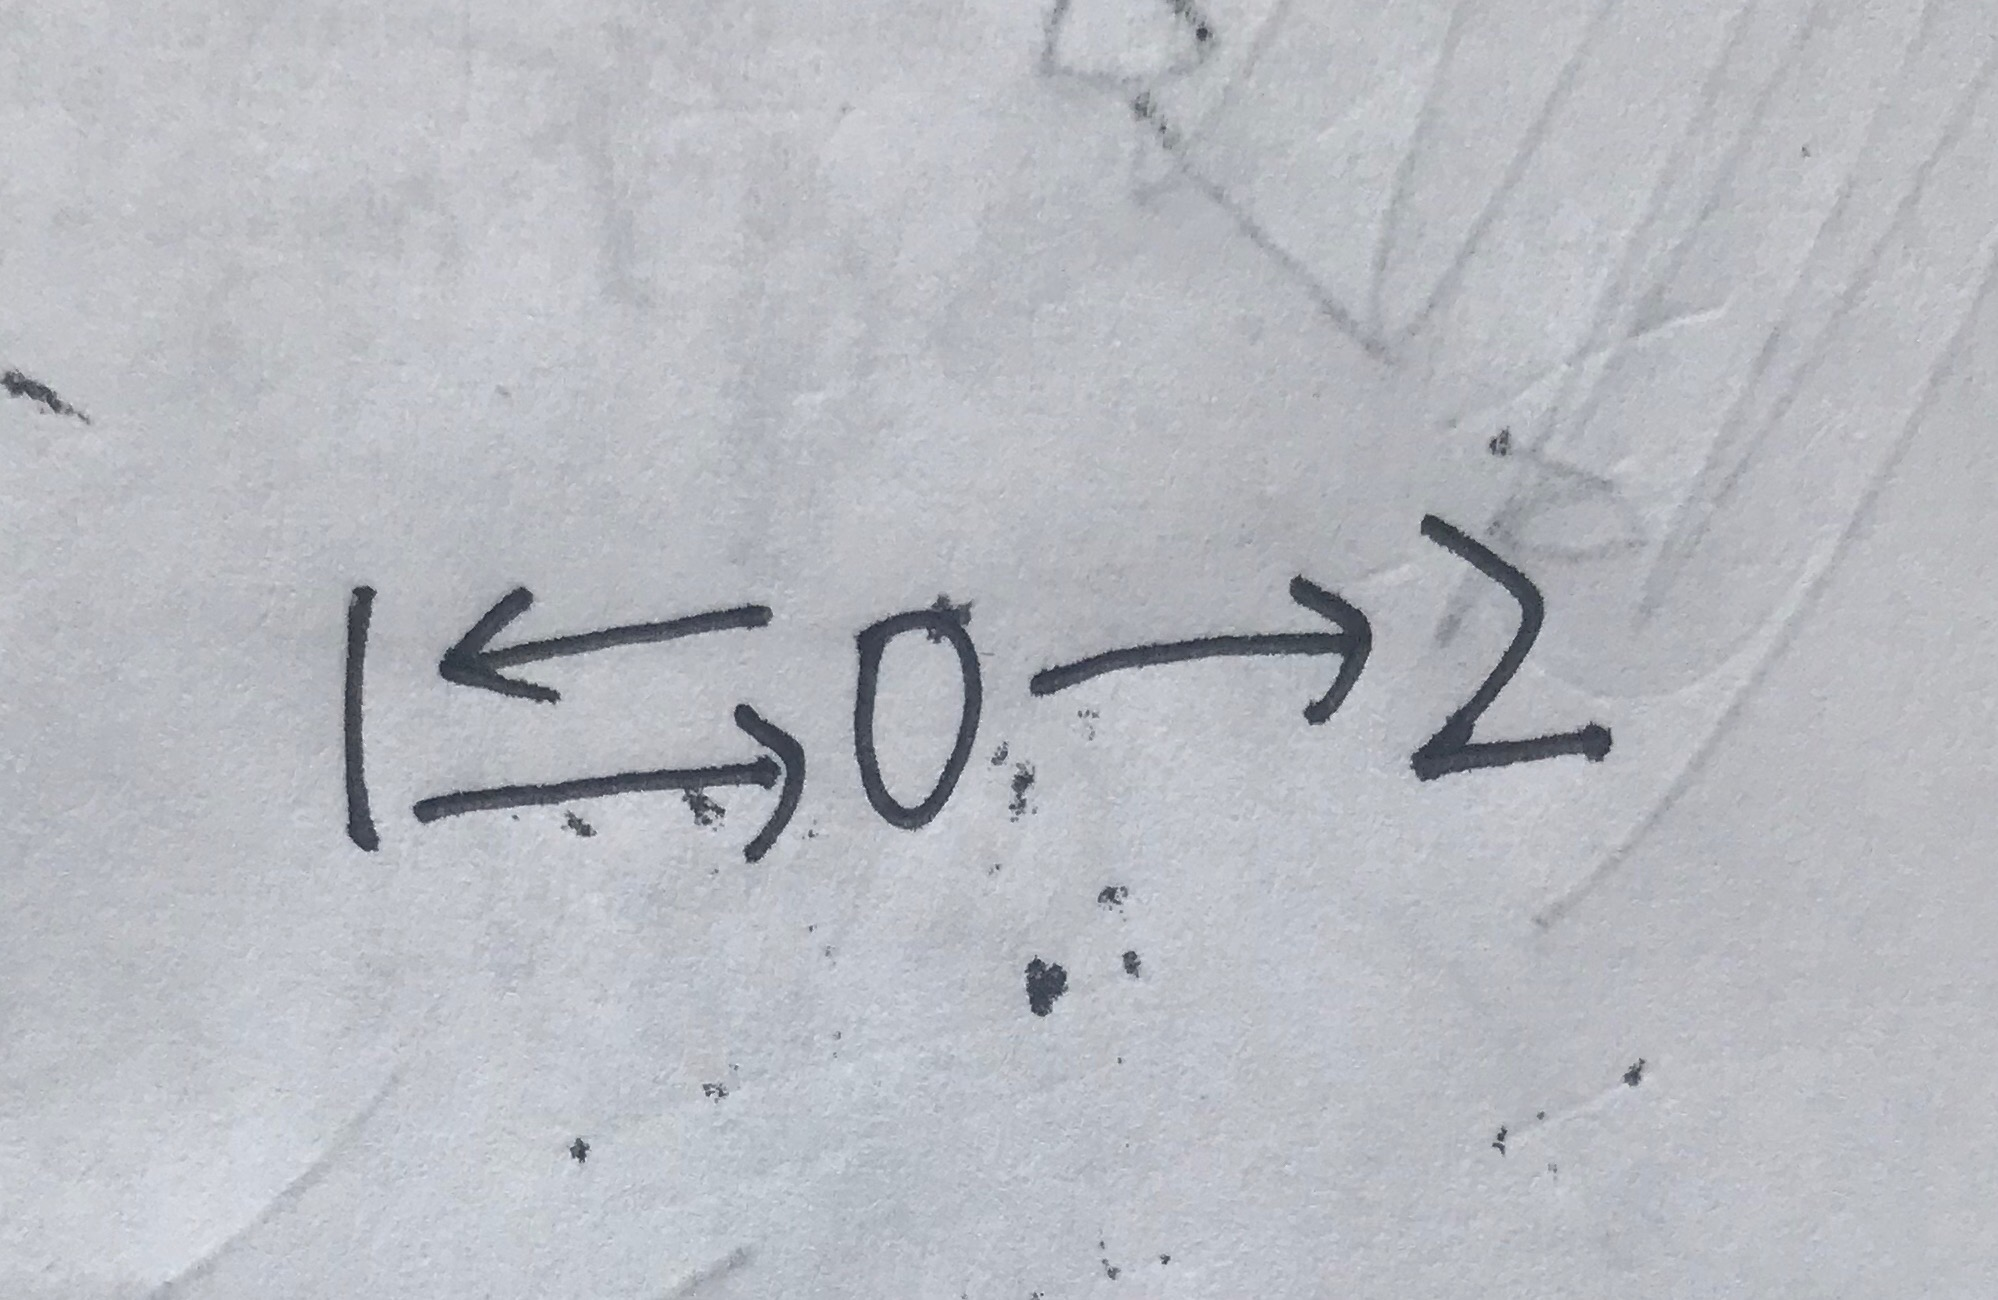 1 ⇆ 0 → 2